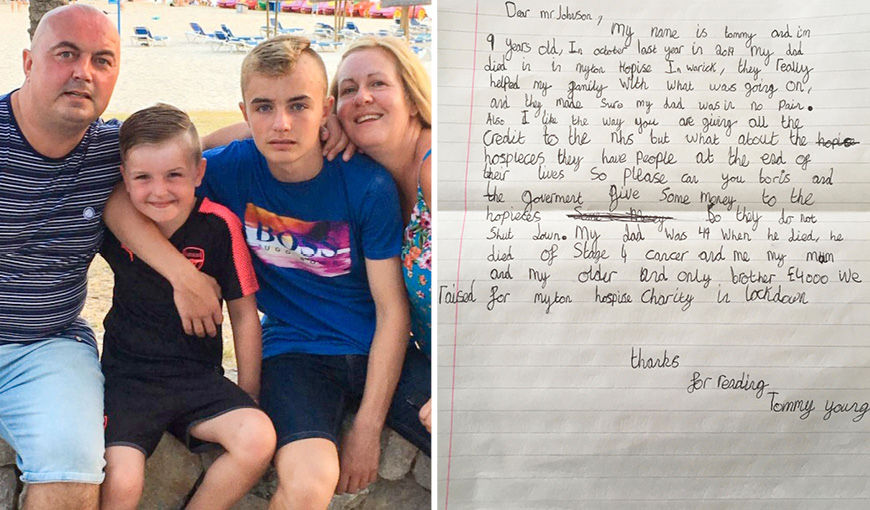 BOSS
HUGO
Dear mr Johnson,
My name is tommy and im
9 years old, In october last year in 2019 my dad
died in in myton Hopise In warick, they really
helped my gamily with what was going on,
and they made sure my dad was in no Pain.
Also I like the way you are giving all the
Credit to the nhs but what about the hopise
hospleces they have People at the end of
their lives So please can you boris and
the goverment give Some money to the
hopieces Some Money So they do not
Shut down. My dad was 49 when he died, he
died of Stage 4 cancer and me my mum
and my older and only brother £4000 we
Taised for myton hospise Charity in lockdown
thanks
for reading
Tommy young